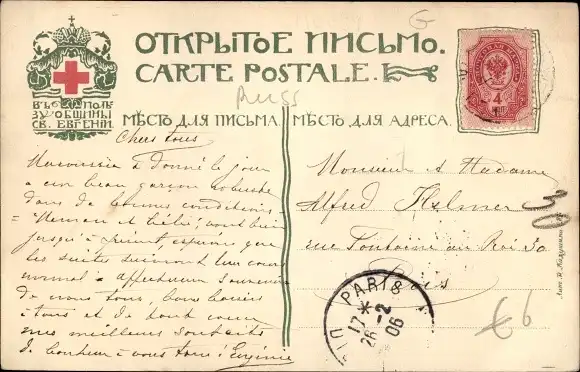 ОТКРЫТОЕ ПИСЬМО.
CARTE POSTALE.
Russ
G
ВЪ ПОЛЬЗУ ОБЩИНЫ
СВ. ЕВГЕНІИ
МѢСТО ДЛЯ ПИСЬМА
МѢСТО ДЛЯ АДРЕСА.
4
Chers tous
a donné le jour
a un beau garçon robuste
dans de bonnes conditions.
Maman et bébé vont bien
jusqu'à présent, espérons que
les suites suivront leur cours
normal. affectueux souvenirs
de nous tous, bons baisers
à tous et de tout cœur
mes meilleurs souhaits
de bonheur à vous tous! Eugénie
Monsieur et Madame
Alfred Helmer
rue Fontaine au Roi 30
Paris
30
PARIS
17 *
26 -2
06
€6